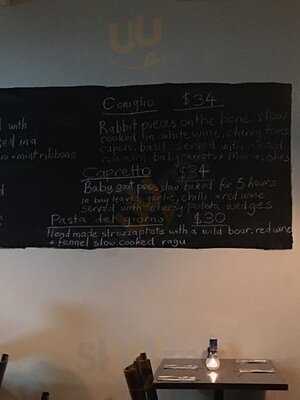 Coniglio $34
Rabbit pieces on the bone, slow
with
cooked in white wine, cherry toms
in a
capers, basil served with
+ mint ribbons
Capretto $34
Baby goat pces slow baked for 5 hours
in bay leaves, garlic, chilli + red wine
served with potato wedges
Pasta del giorno $30
Hand made strozzaprets with a wild boar, red wine
+ fennel slow cooked ragu